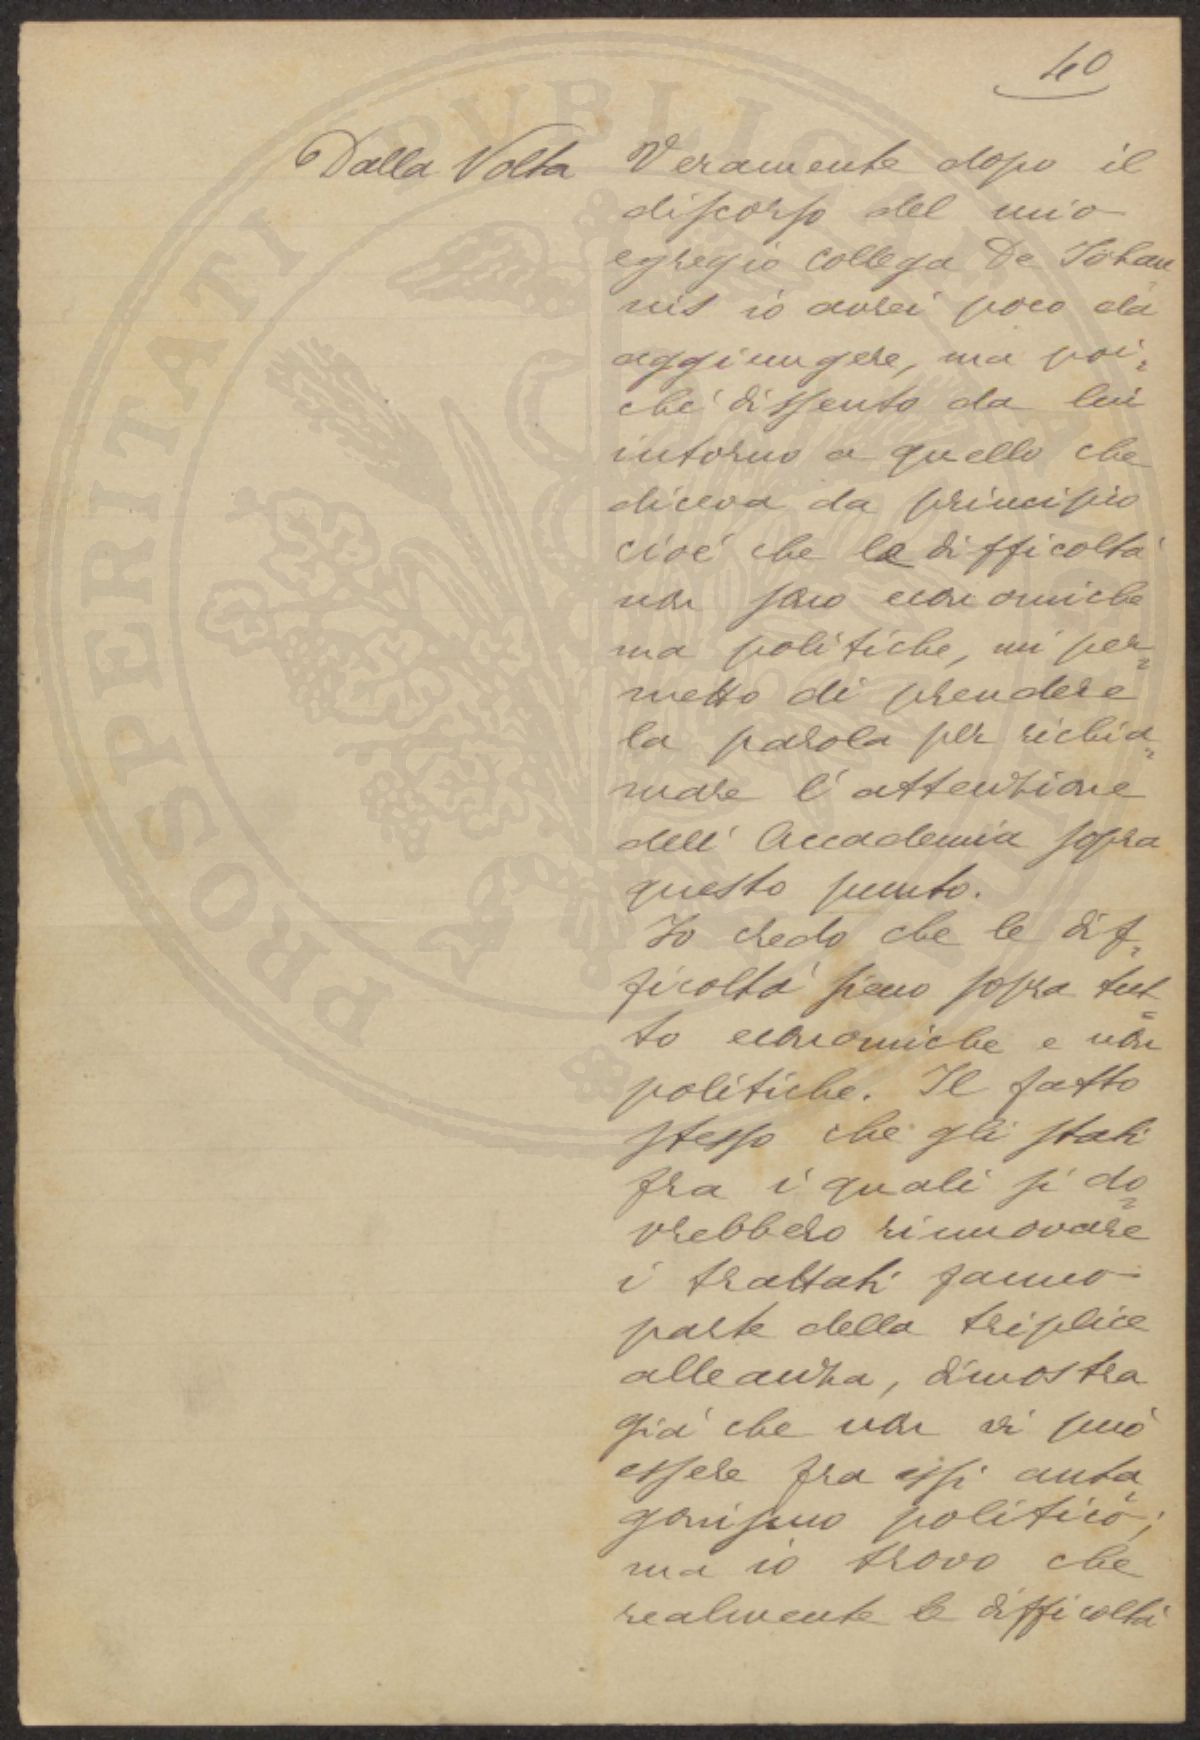 40
Dalla Volta Veramente dopo il
discorso del mio
egregio collega De Johan
nis io avrei poco da
aggiungere, ma poi=
ché dissento da lui
intorno a quello che
diceva da principio
cioé che le difficoltá
non sono economiche
ma politiche, mi per=
metto di prendere
la parola per richia=
mare l'attenzione
dell'Accademia sopra
questo punto.
Io credo che le dif=
ficoltá sieno sopra tut=
to economiche e non
politiche. Il fatto
stesso che gli stati
fra i quali si do=
vrebbero rinnovare
i trattati fanno
parte della triplice
alleanza, dimostra
giá che non vi puó
essere fra essi anta=
gonismo politico;
ma io trovo che
realmente le difficoltá
PROSPERITATI PUBLICAE